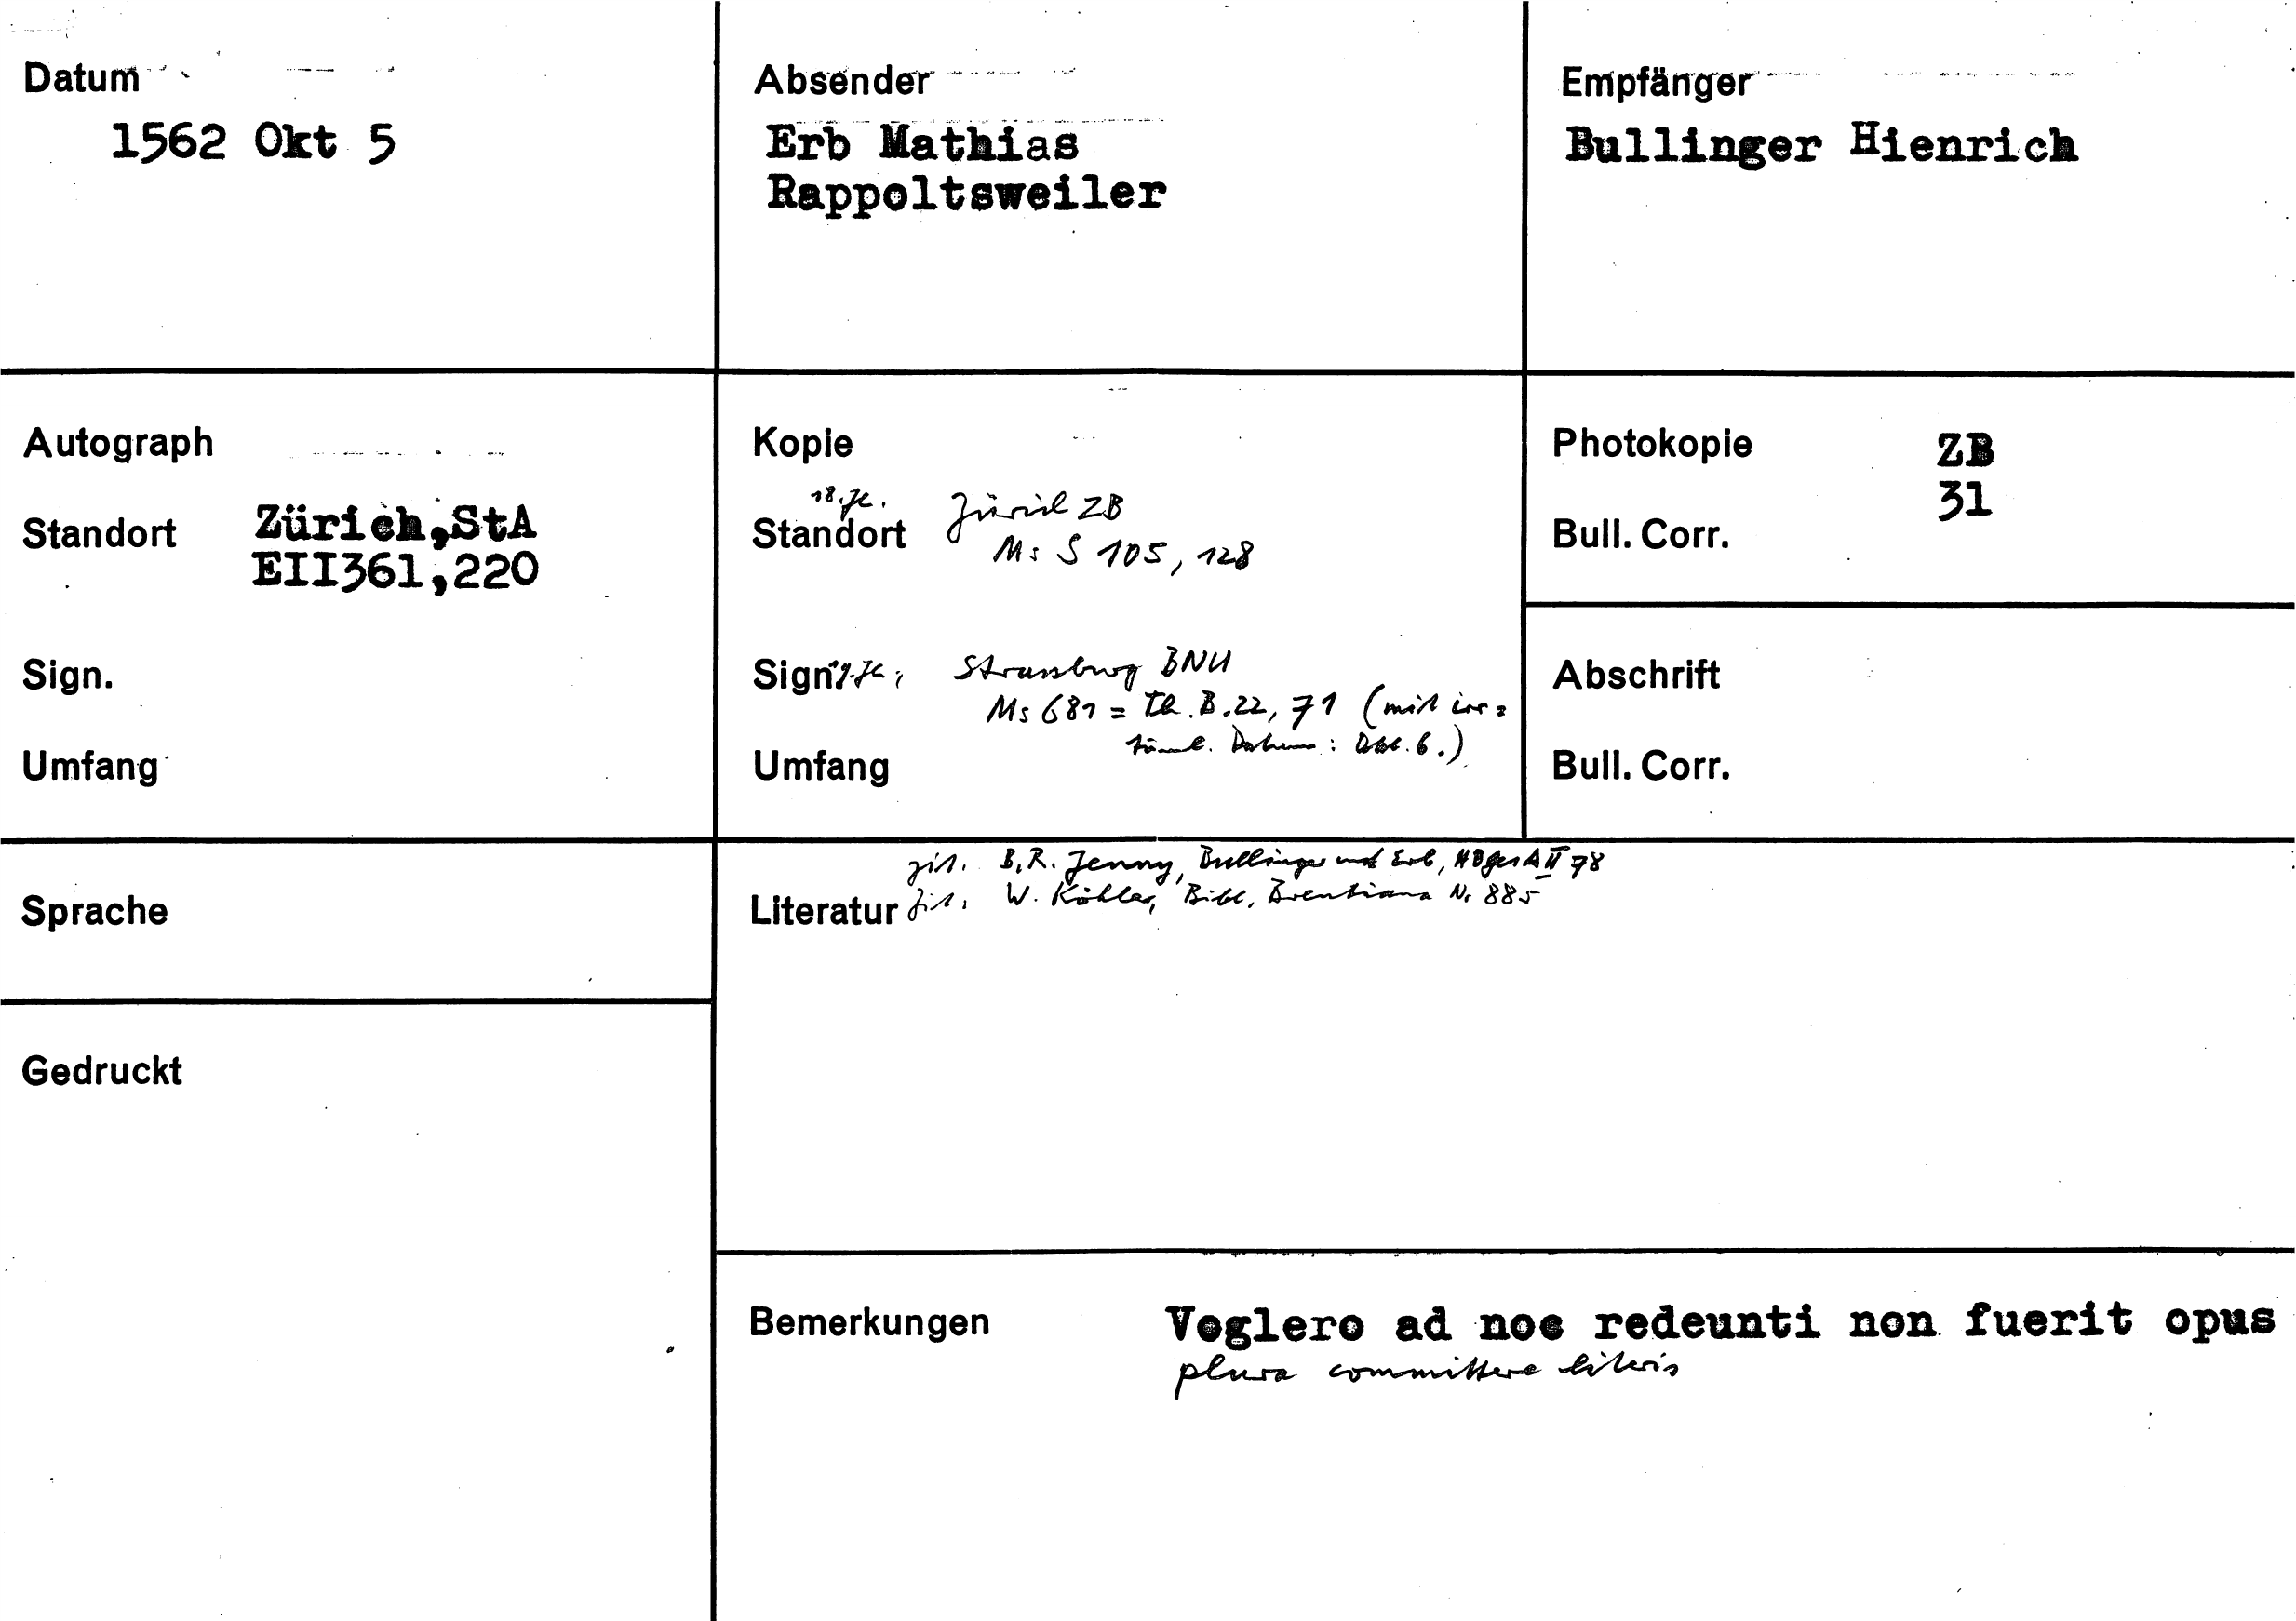 Datum
1562 Okt 5
Absender
Erb Mathias
Rappoltsweiler
Empfänger
Bullinger Hienrich
Autograph
Standort Zürich,StA
EII361,220
Sign.
Umfang
Kopie
18. Jh.
Standort Zürich ZB
Ms S 105, 128
Sign. 19. Jh. Strassburg BNU
Ms 681 = Th. B. 22, 71 (mit irr=
tüml. Datum: Okt. 6.)
Umfang
Photokopie ZB
31
Bull. Corr.
Abschrift
Bull. Corr.
Sprache
Gedruckt
zit. B. R. Jenny, Bullinger und Erb, HBGesA II 78
Literatur zit. W. Köhler, Bibl. Brentiana Nr 885
Bemerkungen Voglero ad nos redeunti non fuerit opus
plura committere literis